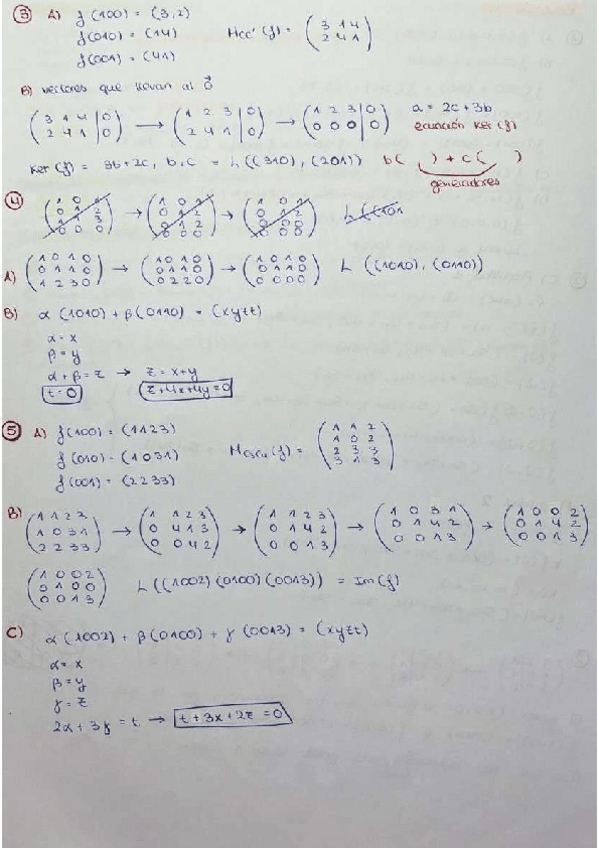 ③ A) f(100) = (3,2)
f(010) = (14) Mcc'(f) = (3 1 4
2 4 1)
f(001) = (41)
B) vectores que llevan al 0⃗
(3 1 4 | 0
2 4 1 | 0) → (1 2 3 | 0
2 4 1 | 0) → (1 2 3 | 0
0 0 0 | 0) a = 2c + 3b
ecuación Ker(f)
Ker(f) = 3b+2c, b, c = L((310), (201)) b( ) + c( )
generadores
④
A) (1 0 1 0
0 1 1 0
1 2 3 0) → (1 0 1 0
0 1 1 0
0 2 2 0) → (1 0 1 0
0 1 1 0
0 0 0 0) L((1010), (0110))
B) α(1010) + β(0110) = (xyzt)
α = x
β = y
α + β = z → z = x+y
t = 0 z+4x+4y=0
⑤ A) f(100) = (1123)
f(010) = (1031) Mc3c4(f) = (1 1 2
1 0 2
2 3 3
3 1 3)
f(001) = (2233)
B) (1 1 2 3
1 0 3 1
2 2 3 3) → (1 1 2 3
0 4 1 3
0 0 4 2) → (1 1 2 3
0 1 4 2
0 0 1 3) → (1 0 3 1
0 1 4 2
0 0 1 3) → (1 0 0 2
0 1 4 2
0 0 1 3)
(1 0 0 2
0 1 0 0
0 0 1 3) L((1002)(0100)(0013)) = Im(f)
C) α(1002) + β(0100) + γ(0013) = (xyzt)
α = x
β = y
γ = z
2α + 3γ = t → t+3x+2z=0